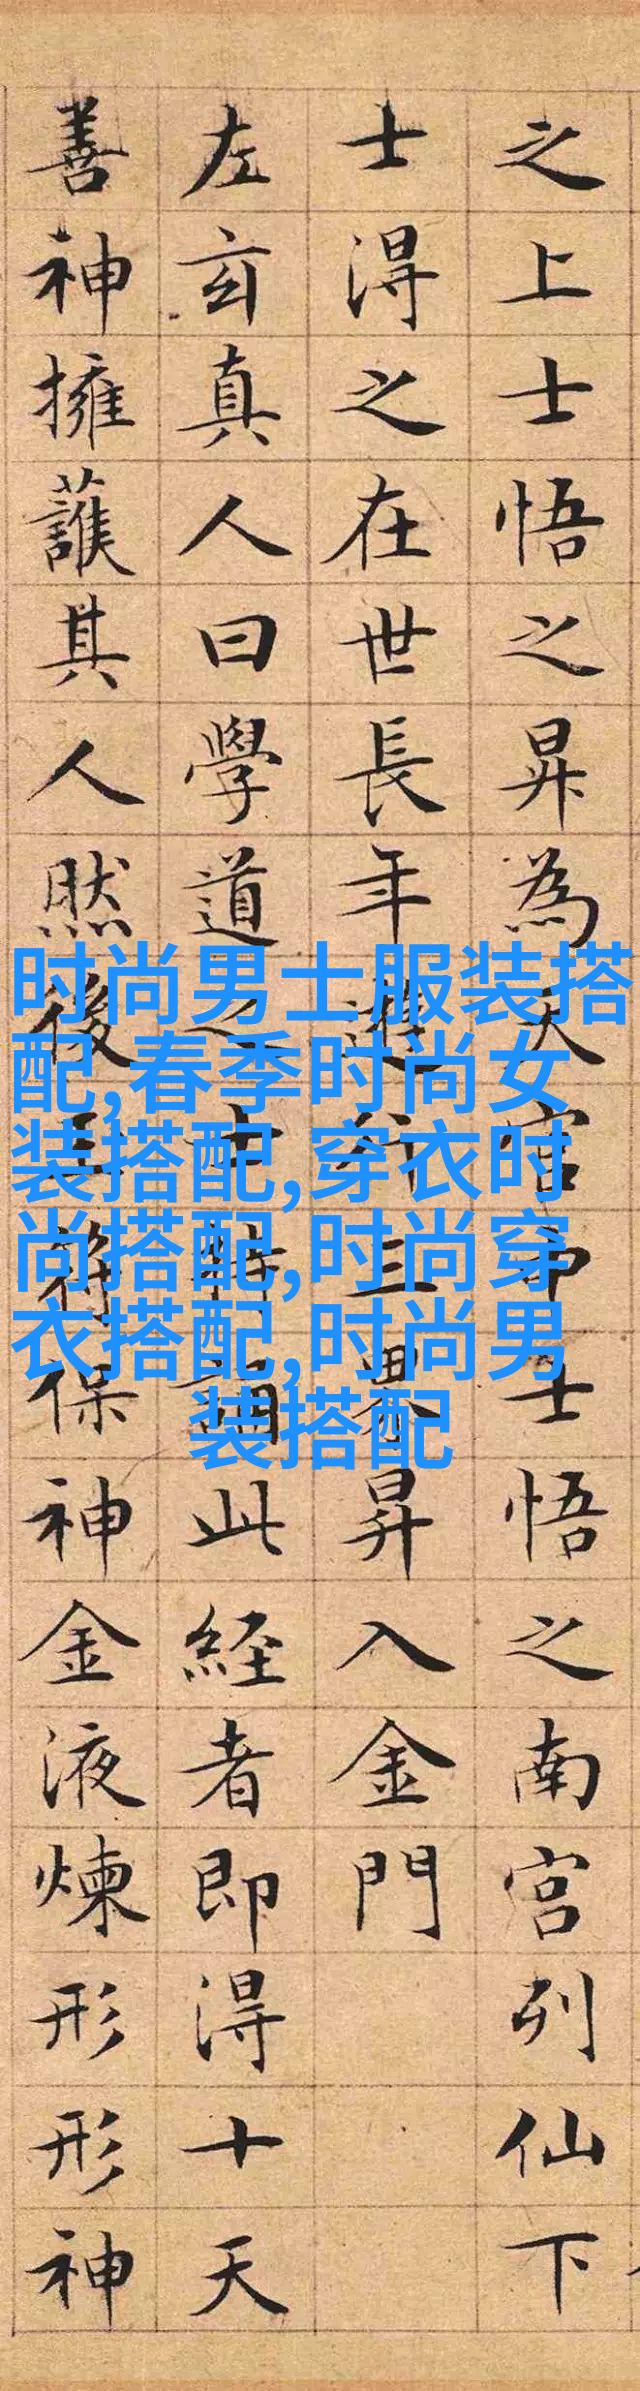 之上士悟之昇為天官中士悟之南宮列仙下
士得之在世長年遊行三界昇入金門
左玄真人曰學道之士持誦此經者即得十天
善神擁護其人然後玉符保神金液煉形形神
时尚男士服装搭
配,春季时尚女
装搭配,穿衣时
尚搭配,时尚穿
衣搭配,时尚男
装搭配